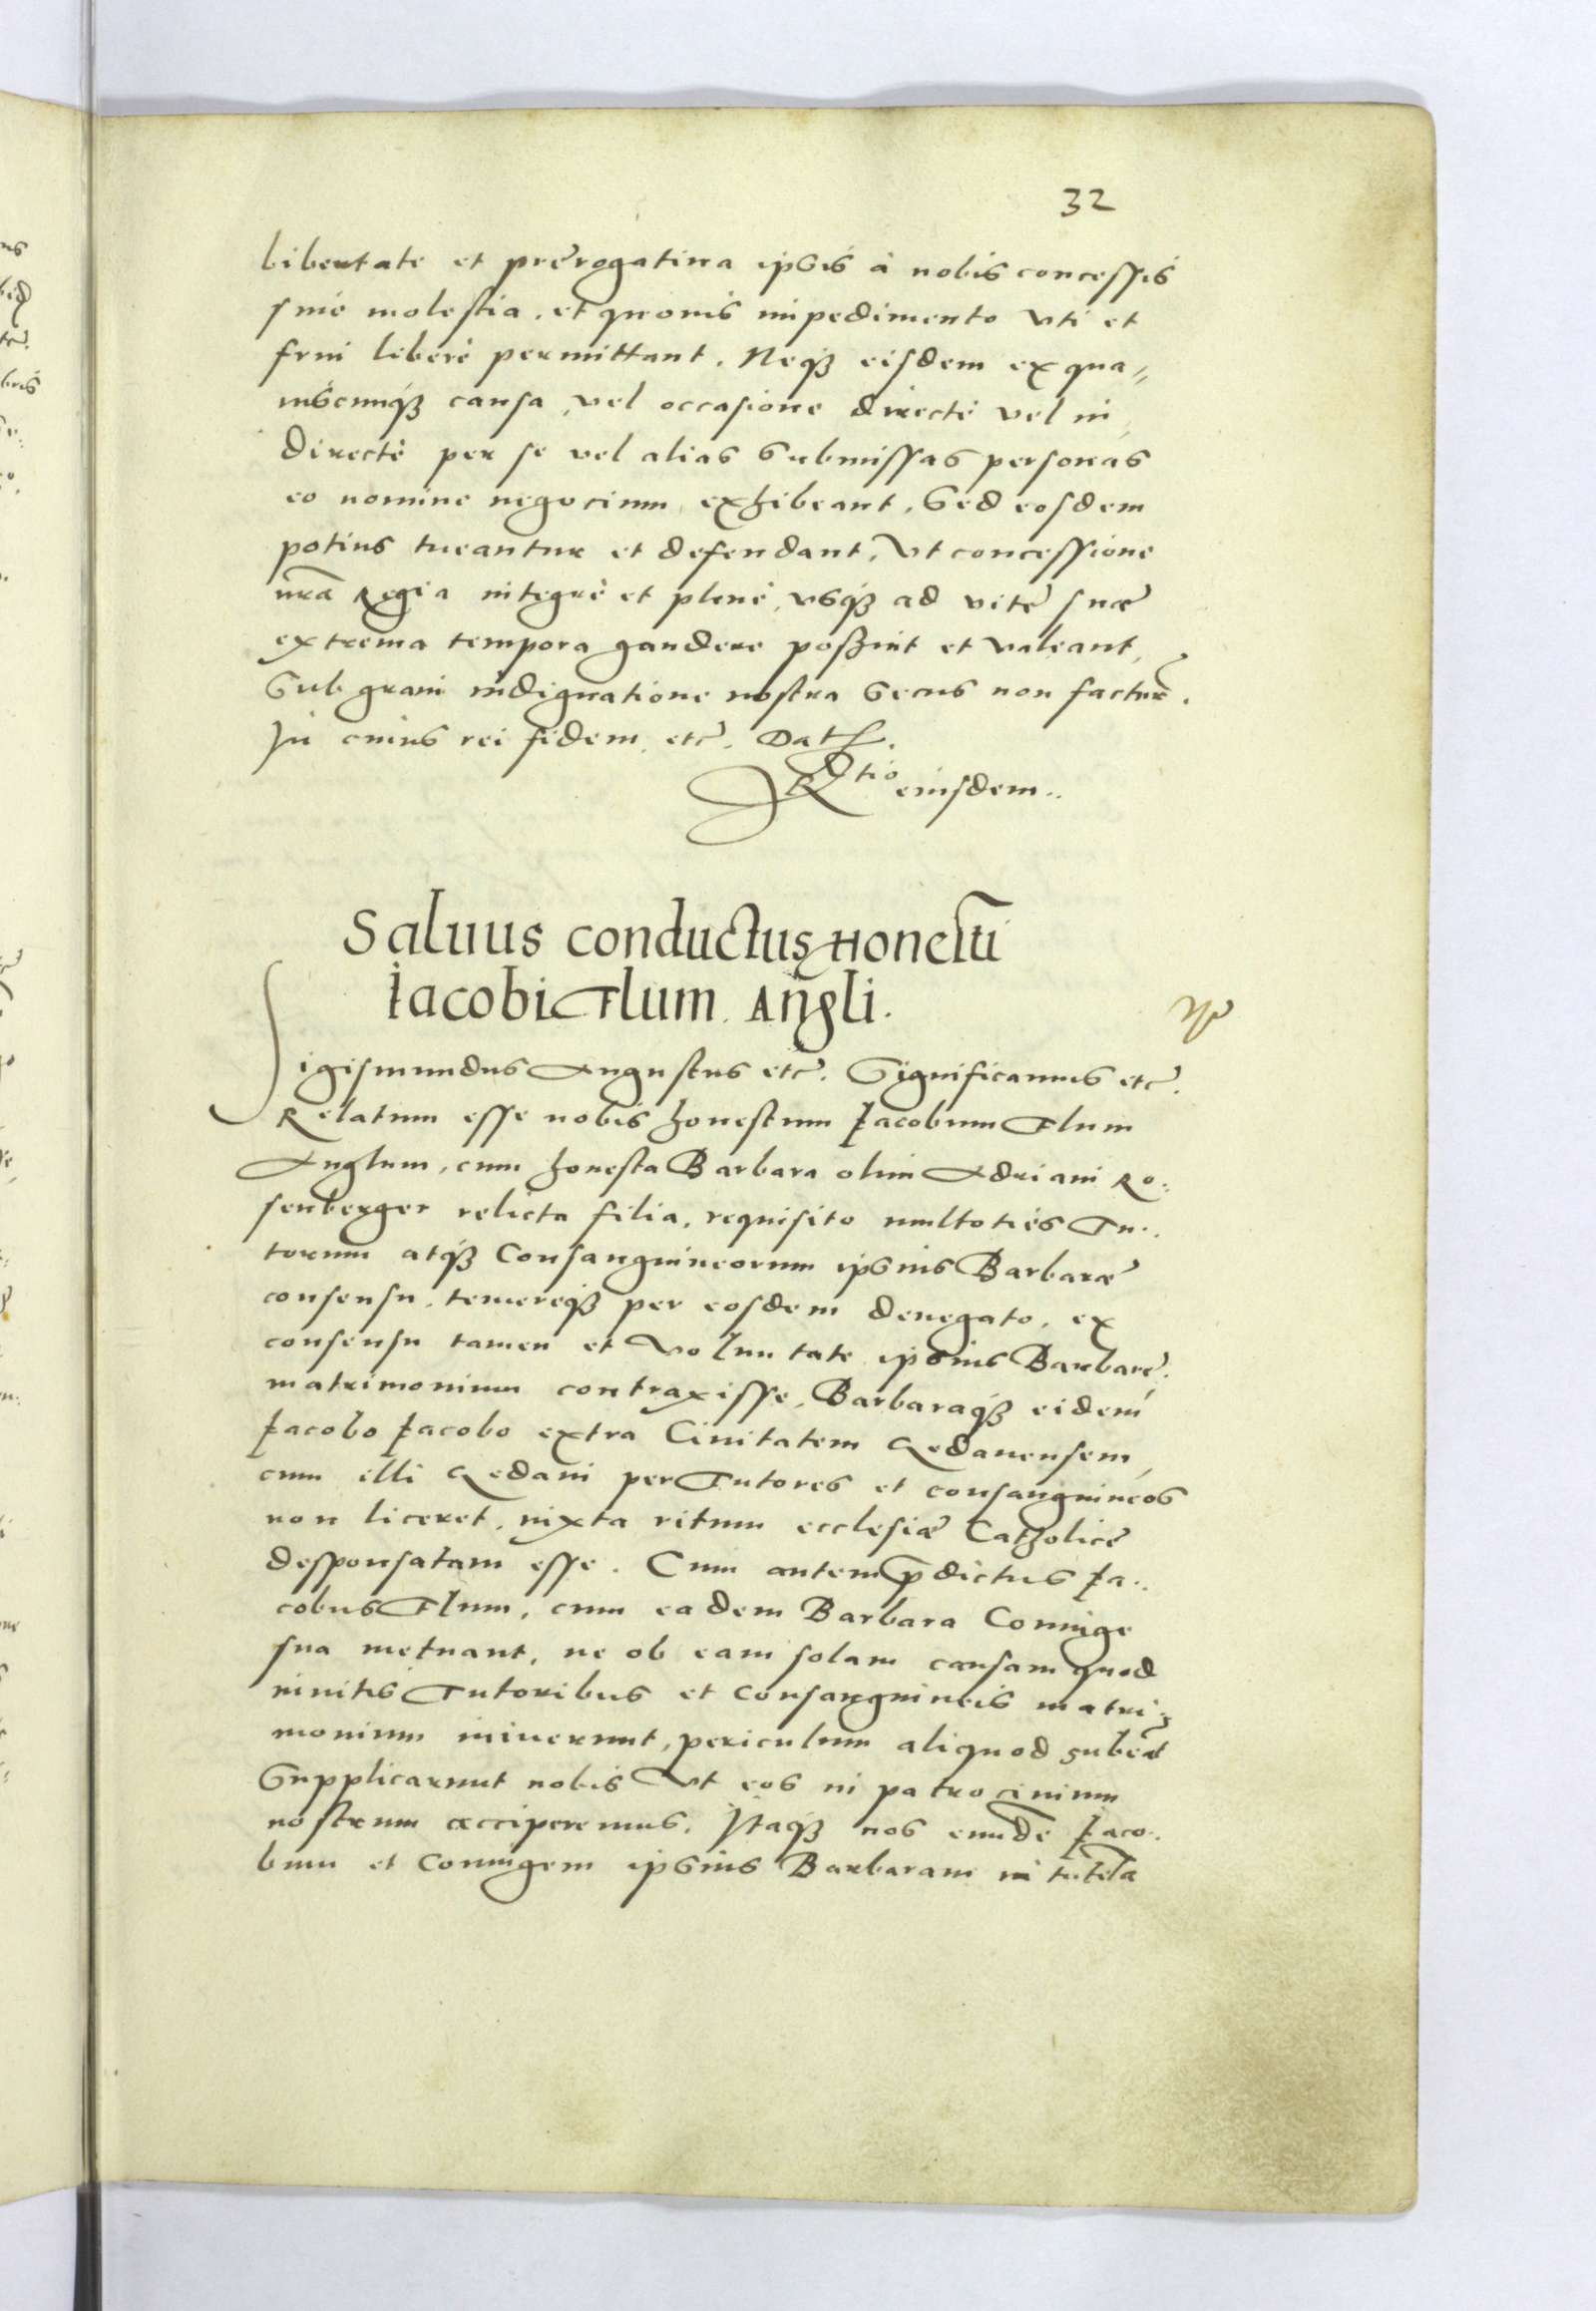 32
libertate et prerogatiua ipsis à nobis concessis
sine molestia, et quouis impedimento vti et
frui liberè permittant. Neqз eisdem ex qua〃
uiscunqз causa, vel occasione directè vel in,
directè per se vel alias submissas personas
eo nomine negocium exhibeant, Sed eosdem
potius tueantur et defendant, Vt concessione
nr̃a Regia integrè et plenè, vsqз ad vite suæ
extrema tempora gaudere possint et valeant,
Sub graui indignatione nostra secus non factur̃.
In cuius rei fidem etc. Dat.
R̃tio eiusdem..
Saluus conductus Honesti
Iacobi Flum Angli.
Sigismundus Augustus etc. Significamus etc.
Relatum esse nobis honestum Iacobum Flum
Anglum, cum honesta Barbara olim Adriani Ro:
senberger relicta filia, requisito multotiès Tu..
torum atqз Consanguineorum ipsius Barbaræ
consensu, temereqз per eosdem denegato, ex
consensu tamen et Voluntate ipsius Barbare,
matrimonium contraxisse, Barbaraqз eidem
Iacobo Iacobo extra Ciuitatem Gedanensem,
cum illi Gedani per Tutores et consanguineos
non liceret, iuxta ritum ecclesiæ Catholice
desponsatam esse. Cum autem p̃dictus Ia..
cobus Flum, cum eadem Barbara Coniuge
sua metuant, ne ob eam solam causam quod
inuitis Tutoribus et consanguineis matri:
monium iniuerunt, periculum aliquod subeãt
Supplicarunt nobis Vt eos in patrocinium
nostrum acciperemus. Itaqз nos eundẽ Iaco..
bum et Coniugem ipsius Barbaram in tutelã